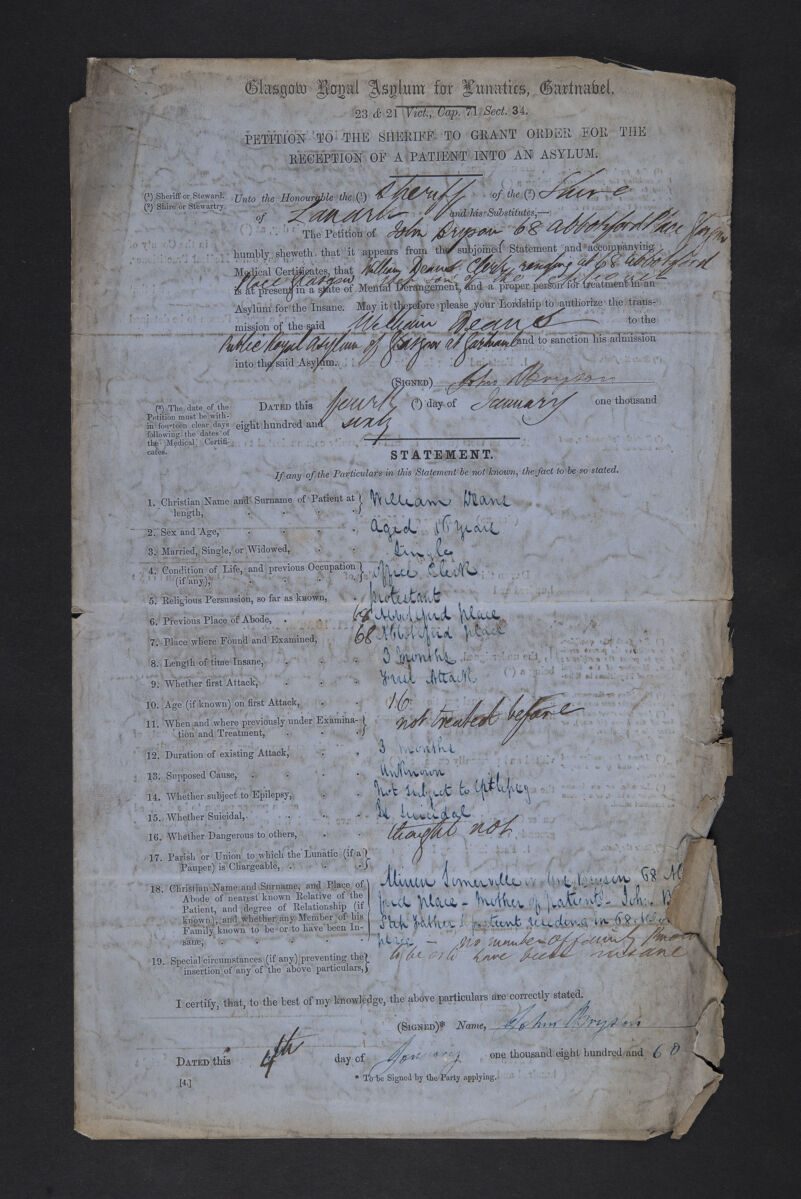 Glasgow Royal Asylum for Lunatics, Gartnavel.
23 & 21 Vict., Cap. 71 Sect. 34.
PETITION TO THE SHERIFF TO GRANT ORDER FOR THE
RECEPTION OF A PATIENT INTO AN ASYLUM.
(¹) Sheriff or Steward.
(²) Shire or Stewartry.
Unto the Honourable the (¹) Sheriff of the (²) Shire
of Lanark and his Substitutes,—
The Petition of John Bryson 68 Abbotsford Place Glasgow
humbly sheweth that it appears from the subjoined Statement and accompanying
Medical Certificates, that William Deans Clerk residing at 68 Abbotsford
Place Glasgow
is at present in a state of Mental Derangement, and a proper person for treatment in an
Asylum for the Insane. May it therefore please your Lordship to authorize the trans-
mission of the said William Deans to the
Public Royal Asylum of Glasgow at Gartnavel and to sanction his admission
into the said Asylum.
(SIGNED) John Bryson
(³) The date of the
Petition must be with-
in fourteen clear days
following the dates of
the Medical Certifi-
cates.
DATED this fourth (³) day of January one thousand
eight hundred and sixty
STATEMENT.
If any of the Particulars in this Statement be not known, the fact to be so stated.
1. Christian Name and Surname of Patient at
length, William Deans
2. Sex and Age, Aged 16 years
3. Married, Single, or Widowed, Single
4. Condition of Life, and previous Occupation
(if any), office Clerk
5. Religious Persuasion, so far as known, protestant
6. Previous Place of Abode, 68 Abbotsford place
7. Place where Found and Examined, 68 Abbotsford place
8. Length of time Insane, 3 months
9. Whether first Attack, first Attack
10. Age (if known) on first Attack, 16
11. When and where previously under Examina-
tion and Treatment, not treated before
12. Duration of existing Attack, 3 months
13. Supposed Cause, Unknown
14. Whether subject to Epilepsy, Not subject to Epilepsy
15. Whether Suicidal, Is suicidal
16. Whether Dangerous to others, thought not
17. Parish or Union to which the Lunatic (if a
Pauper) is Chargeable,
18. Christian Name and Surname, and Place of
Abode of nearest known Relative of the
Patient, and degree of Relationship (if
known), and whether any Member of his
Family known to be or to have been In-
sane,
Somerville or Bryson 68
place - Mother of patient - John
Step Father of patient residing in 68
place - no member of family known
to be or to have been insane
19. Special circumstances (if any) preventing the
insertion of any of the above particulars,
I certify, that, to the best of my knowledge, the above particulars are correctly stated.
(SIGNED)* Name, John Bryson
DATED this 4th day of January one thousand eight hundred and 60
* To be Signed by the Party applying.
[4.]